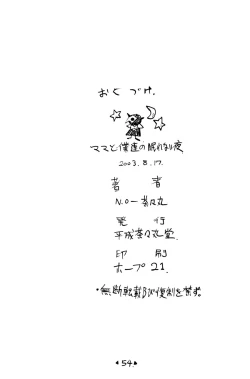 おくづけ.
ママと僕達の眠れない夜
2003.8.17.
著 者
N.O-茶々丸
発 行
平成茶々丸堂.
印 刷
ホープ21.
・無断転載及び複製を禁ず.
・54・